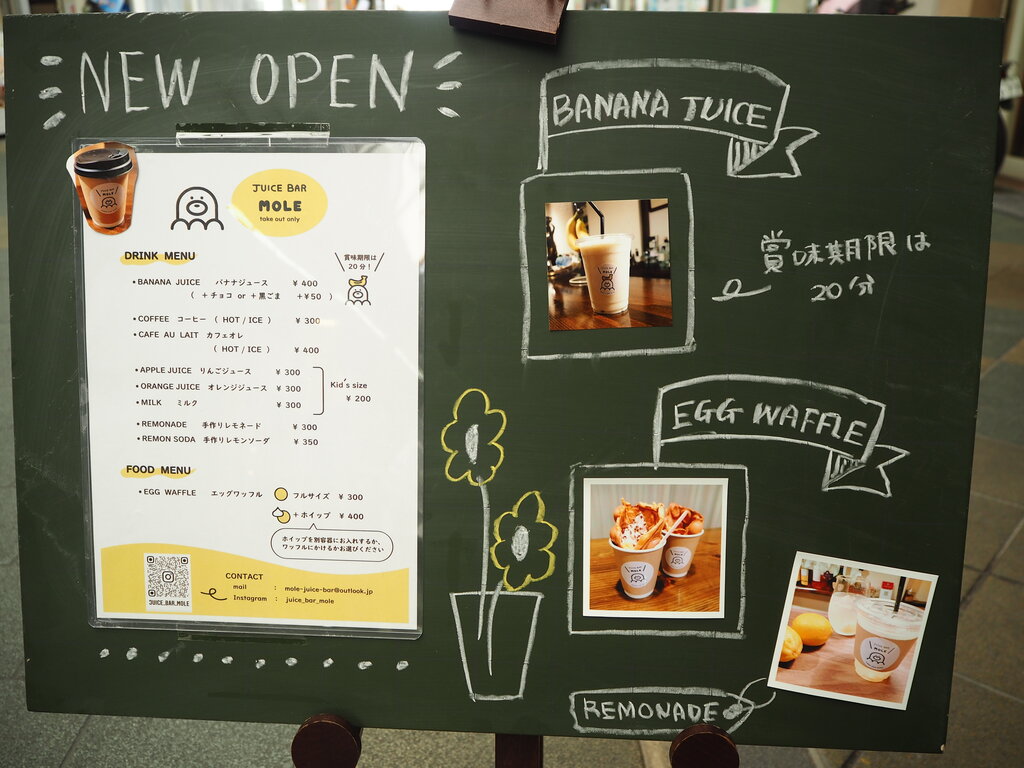 NEW OPEN
JUICE BAR
MOLE
take out only
DRINK MENU
賞味期限は
20分!
•BANANA JUICE バナナジュース ¥ 400
( +チョコ or +黒ごま +¥50 )
•COFFEE コーヒー ( HOT / ICE ) ¥ 300
•CAFE AU LAIT カフェオレ
( HOT / ICE ) ¥ 400
•APPLE JUICE りんごジュース ¥ 300
•ORANGE JUICE オレンジジュース ¥ 300
•MILK ミルク ¥ 300
Kid's size
¥ 200
•REMONADE 手作りレモネード ¥ 300
•REMON SODA 手作りレモンソーダ ¥ 350
FOOD MENU
•EGG WAFFLE エッグワッフル フルサイズ ¥ 300
+ホイップ ¥ 400
ホイップを別容器にお入れするか、
ワッフルにかけるかお選びください
JUICE_BAR_MOLE
CONTACT
mail : mole-juice-bar@outlook.jp
Instagram : juice_bar_mole
BANANA JUICE
賞味期限は
20分
EGG WAFFLE
REMONADE
MOLE